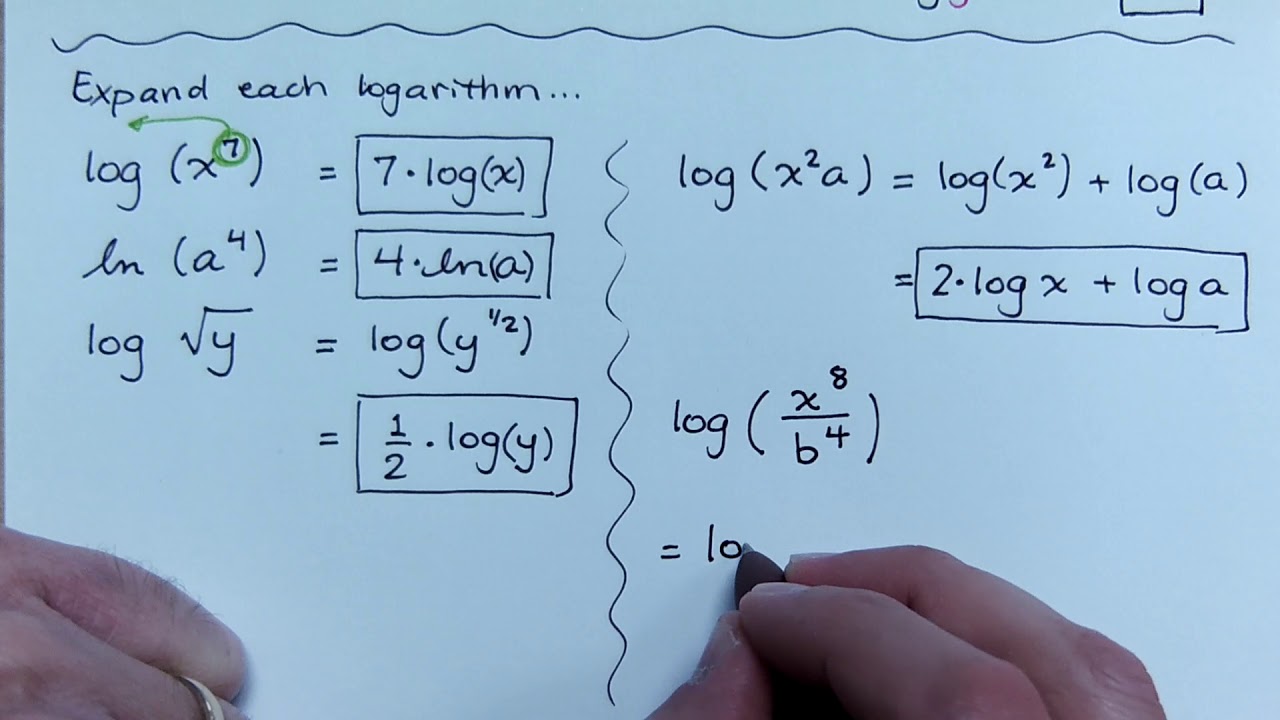 Expand each logarithm...
log (x⁷) = 7·log(x)
ln (a⁴) = 4·ln(a)
log √y = log(y^1/2)
= 1/2 · log(y)
log(x²a) = log(x²) + log(a)
= 2·log x + log a
log(x⁸/b⁴)
= lo